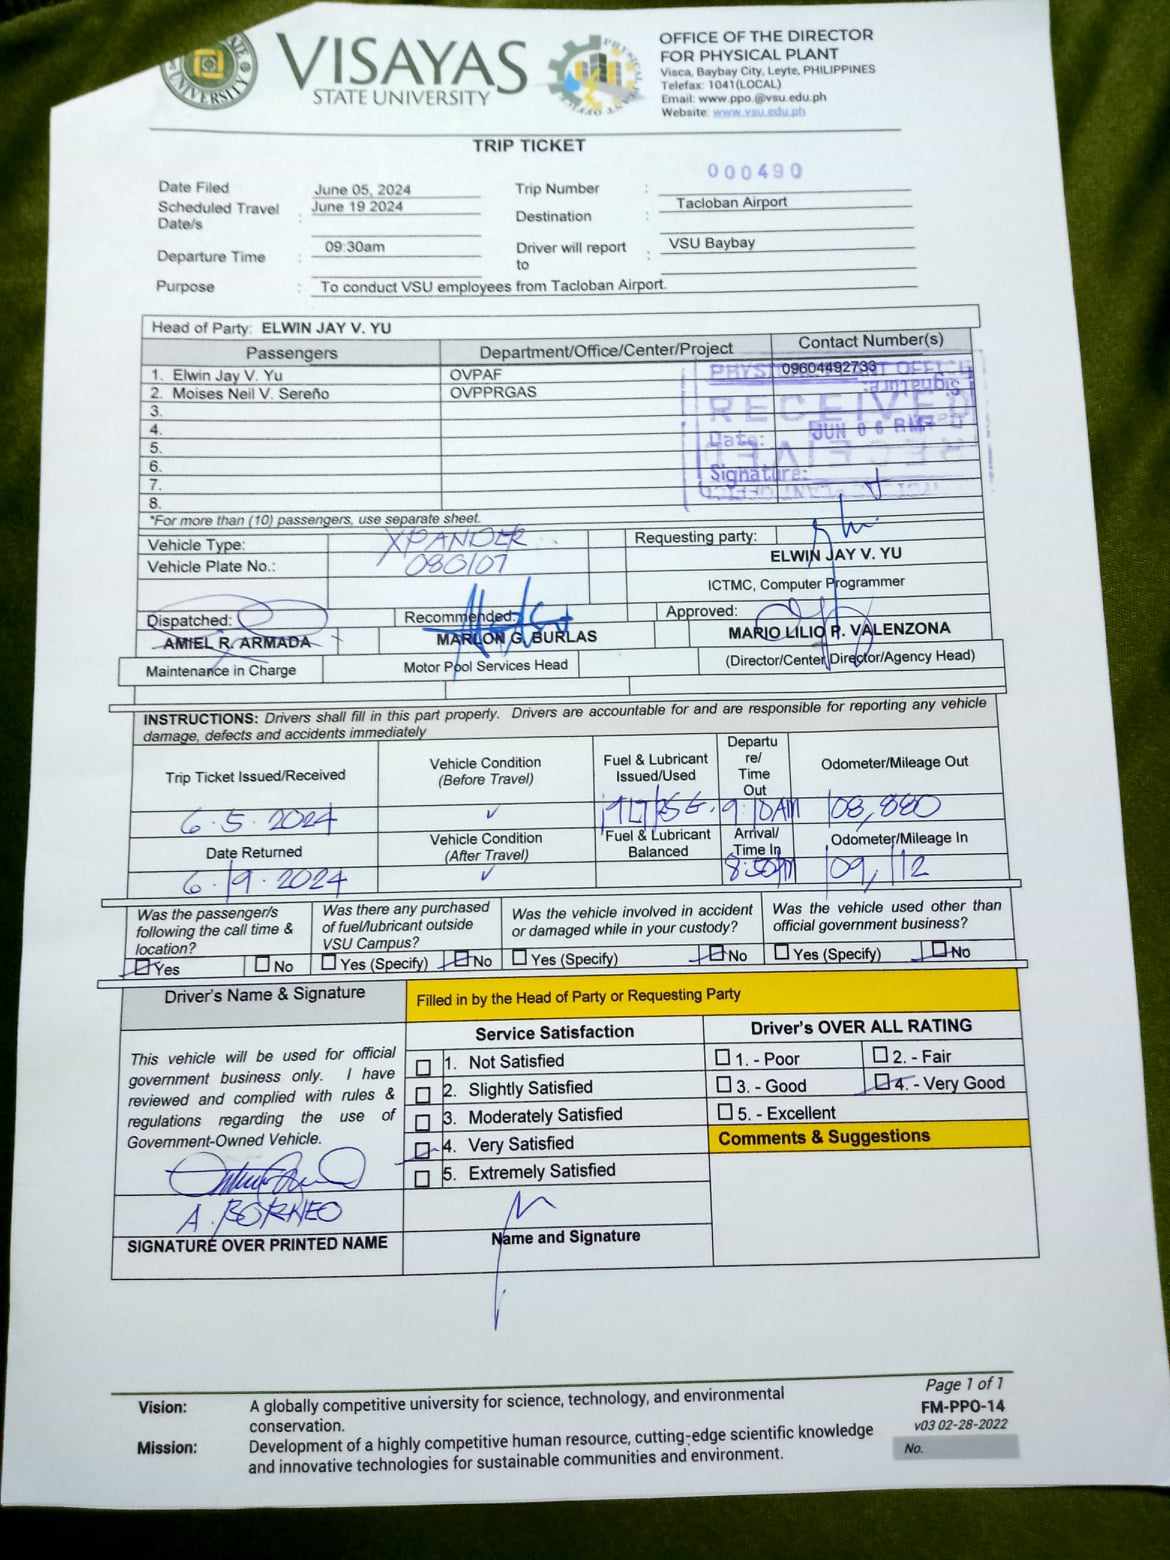 VISAYAS
STATE UNIVERSITY
UNIVERSITY
OFFICE OF THE DIRECTOR
FOR PHYSICAL PLANT
Visca, Baybay City, Leyte, PHILIPPINES
Telefax: 1041(LOCAL)
Email: www.ppo.@vsu.edu.ph
Website: www.vsu.edu.ph
TRIP TICKET
Date Filed June 05, 2024 Trip Number : 000490
Scheduled Travel Date/s : June 19 2024 Destination : Tacloban Airport
Departure Time : 09:30am Driver will report to : VSU Baybay
Purpose : To conduct VSU employees from Tacloban Airport.
Head of Party: ELWIN JAY V. YU
Passengers Department/Office/Center/Project Contact Number(s)
1. Elwin Jay V. Yu OVPAF 09604492733
2. Moises Neil V. Sereño OVPPRGAS
3.
4.
5.
6.
7.
8.
RECEIVED
Date: JUN 06
Signature:
*For more than (10) passengers, use separate sheet.
Vehicle Type: XPANDER Requesting party:
Vehicle Plate No.: 080107 ELWIN JAY V. YU
ICTMC, Computer Programmer
Dispatched: Recommended: Approved:
AMIEL R. ARMADA MARLON G. BURLAS MARIO LILIO P. VALENZONA
Maintenance in Charge Motor Pool Services Head (Director/Center Director/Agency Head)
INSTRUCTIONS: Drivers shall fill in this part properly. Drivers are accountable for and are responsible for reporting any vehicle
damage, defects and accidents immediately
Trip Ticket Issued/Received Vehicle Condition (Before Travel) Fuel & Lubricant Issued/Used Departu re/ Time Out Odometer/Mileage Out
6.5.2024 ✓ 9:10AM 108,880
Date Returned Vehicle Condition (After Travel) Fuel & Lubricant Balanced Arrival/ Time In Odometer/Mileage In
6.19.2024 ✓ 8:50PM 109,112
Was the passenger/s following the call time & location? Was there any purchased of fuel/lubricant outside VSU Campus? Was the vehicle involved in accident or damaged while in your custody? Was the vehicle used other than official government business?
Yes No Yes (Specify) No Yes (Specify) No Yes (Specify) No
Driver's Name & Signature Filled in by the Head of Party or Requesting Party
Service Satisfaction Driver's OVER ALL RATING
This vehicle will be used for official
government business only. I have
reviewed and complied with rules &
regulations regarding the use of
Government-Owned Vehicle.
1. Not Satisfied
2. Slightly Satisfied
3. Moderately Satisfied
4. Very Satisfied
5. Extremely Satisfied
1. - Poor 2. - Fair
3. - Good 4. - Very Good
5. - Excellent
Comments & Suggestions
A. BORNEO
SIGNATURE OVER PRINTED NAME Name and Signature
Page 1 of 1
FM-PPO-14
v03 02-28-2022
No.
Vision: A globally competitive university for science, technology, and environmental
conservation.
Mission: Development of a highly competitive human resource, cutting-edge scientific knowledge
and innovative technologies for sustainable communities and environment.